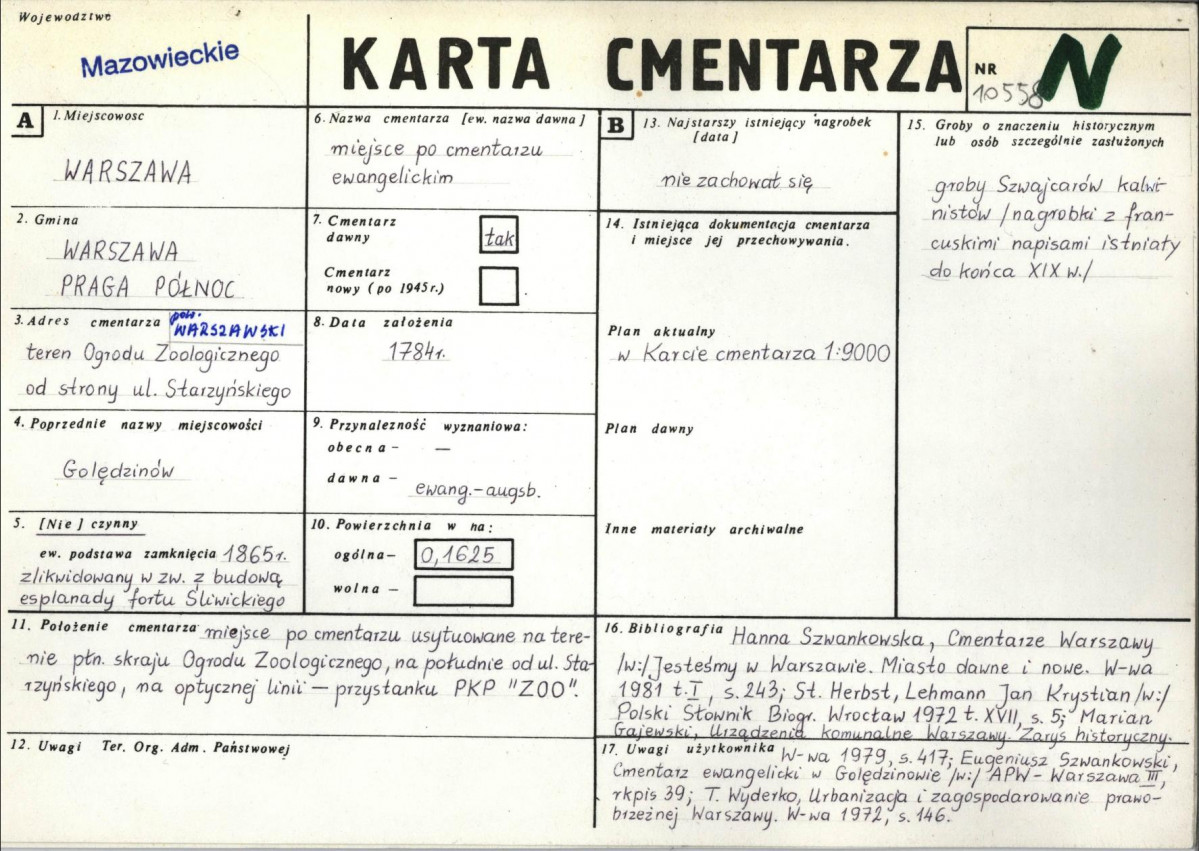 Województwo
Mazowieckie
KARTA CMENTARZA
NR
10558
N
A
1. Miejscowosc
WARSZAWA
2. Gmina
WARSZAWA
PRAGA PÓŁNOC
3. Adres cmentarza
pow.
WARSZAWSKI
teren Ogrodu Zoologicznego
od strony ul. Starzyńskiego
4. Poprzednie nazwy miejscowości
Golędzinów
5. [Nie] czynny
ew. podstawa zamknięcia 1865r.
zlikwidowany w zw. z budową
esplanady fortu Śliwickiego
6. Nazwa cmentarza [ew. nazwa dawna]
miejsce po cmentarzu
ewangelickim
7. Cmentarz
dawny
tak
Cmentarz
nowy (po 1945r.)
8. Data założenia
1784r.
9. Przynalezność wyznaniowa:
obecna – —
dawna – ewang.-augsb.
10. Powierzchnia w ha:
ogólna – 0,1625
wolna –
B
13. Najstarszy istniejący nagrobek
[data]
nie zachował się
14. Istniejąca dokumentacja cmentarza
i miejsce jej przechowywania.
Plan aktualny
w Karcie cmentarza 1:9000
Plan dawny
Inne materiały archiwalne
15. Groby o znaczeniu historycznym
lub osób szczególnie zasłużonych
groby Szwajcarów kalwi-
nistów /nagrobki z fran-
cuskimi napisami istniały
do końca XIX w./
11. Położenie cmentarza miejsce po cmentarzu usytuowane na tere-
nie płn. skraju Ogrodu Zoologicznego, na południe od ul. Sta-
rzyńskiego, na optycznej linii – przystanku PKP "ZOO".
12. Uwagi Ter. Org. Adm. Państwowej
16. Bibliografia Hanna Szwankowska, Cmentarze Warszawy
/w:/ Jesteśmy w Warszawie. Miasto dawne i nowe. W-wa
1981 t.I, s.243; St. Herbst, Lehmann Jan Krystian /w:/
Polski Słownik Biogr. Wrocław 1972 t. XVII, s. 5; Marian
Gajewski, Urządzenia komunalne Warszawy. Zarys historyczny.
17. Uwagi użytkownika W-wa 1979, s. 417; Eugeniusz Szwankowski,
Cmentarz ewangelicki w Golędzinowie /w:/ APW – Warszawa III,
rkpis 39; T. Wyderko, Urbanizacja i zagospodarowanie prawo-
brzeżnej Warszawy. W-wa 1972, s. 146.